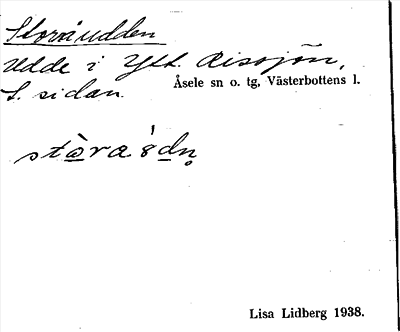 Storåudden
Udde i Ytt. Rissjön,
S. sidan.
Åsele sn o. tg, Västerbottens l.
Lisa Lidberg 1938.